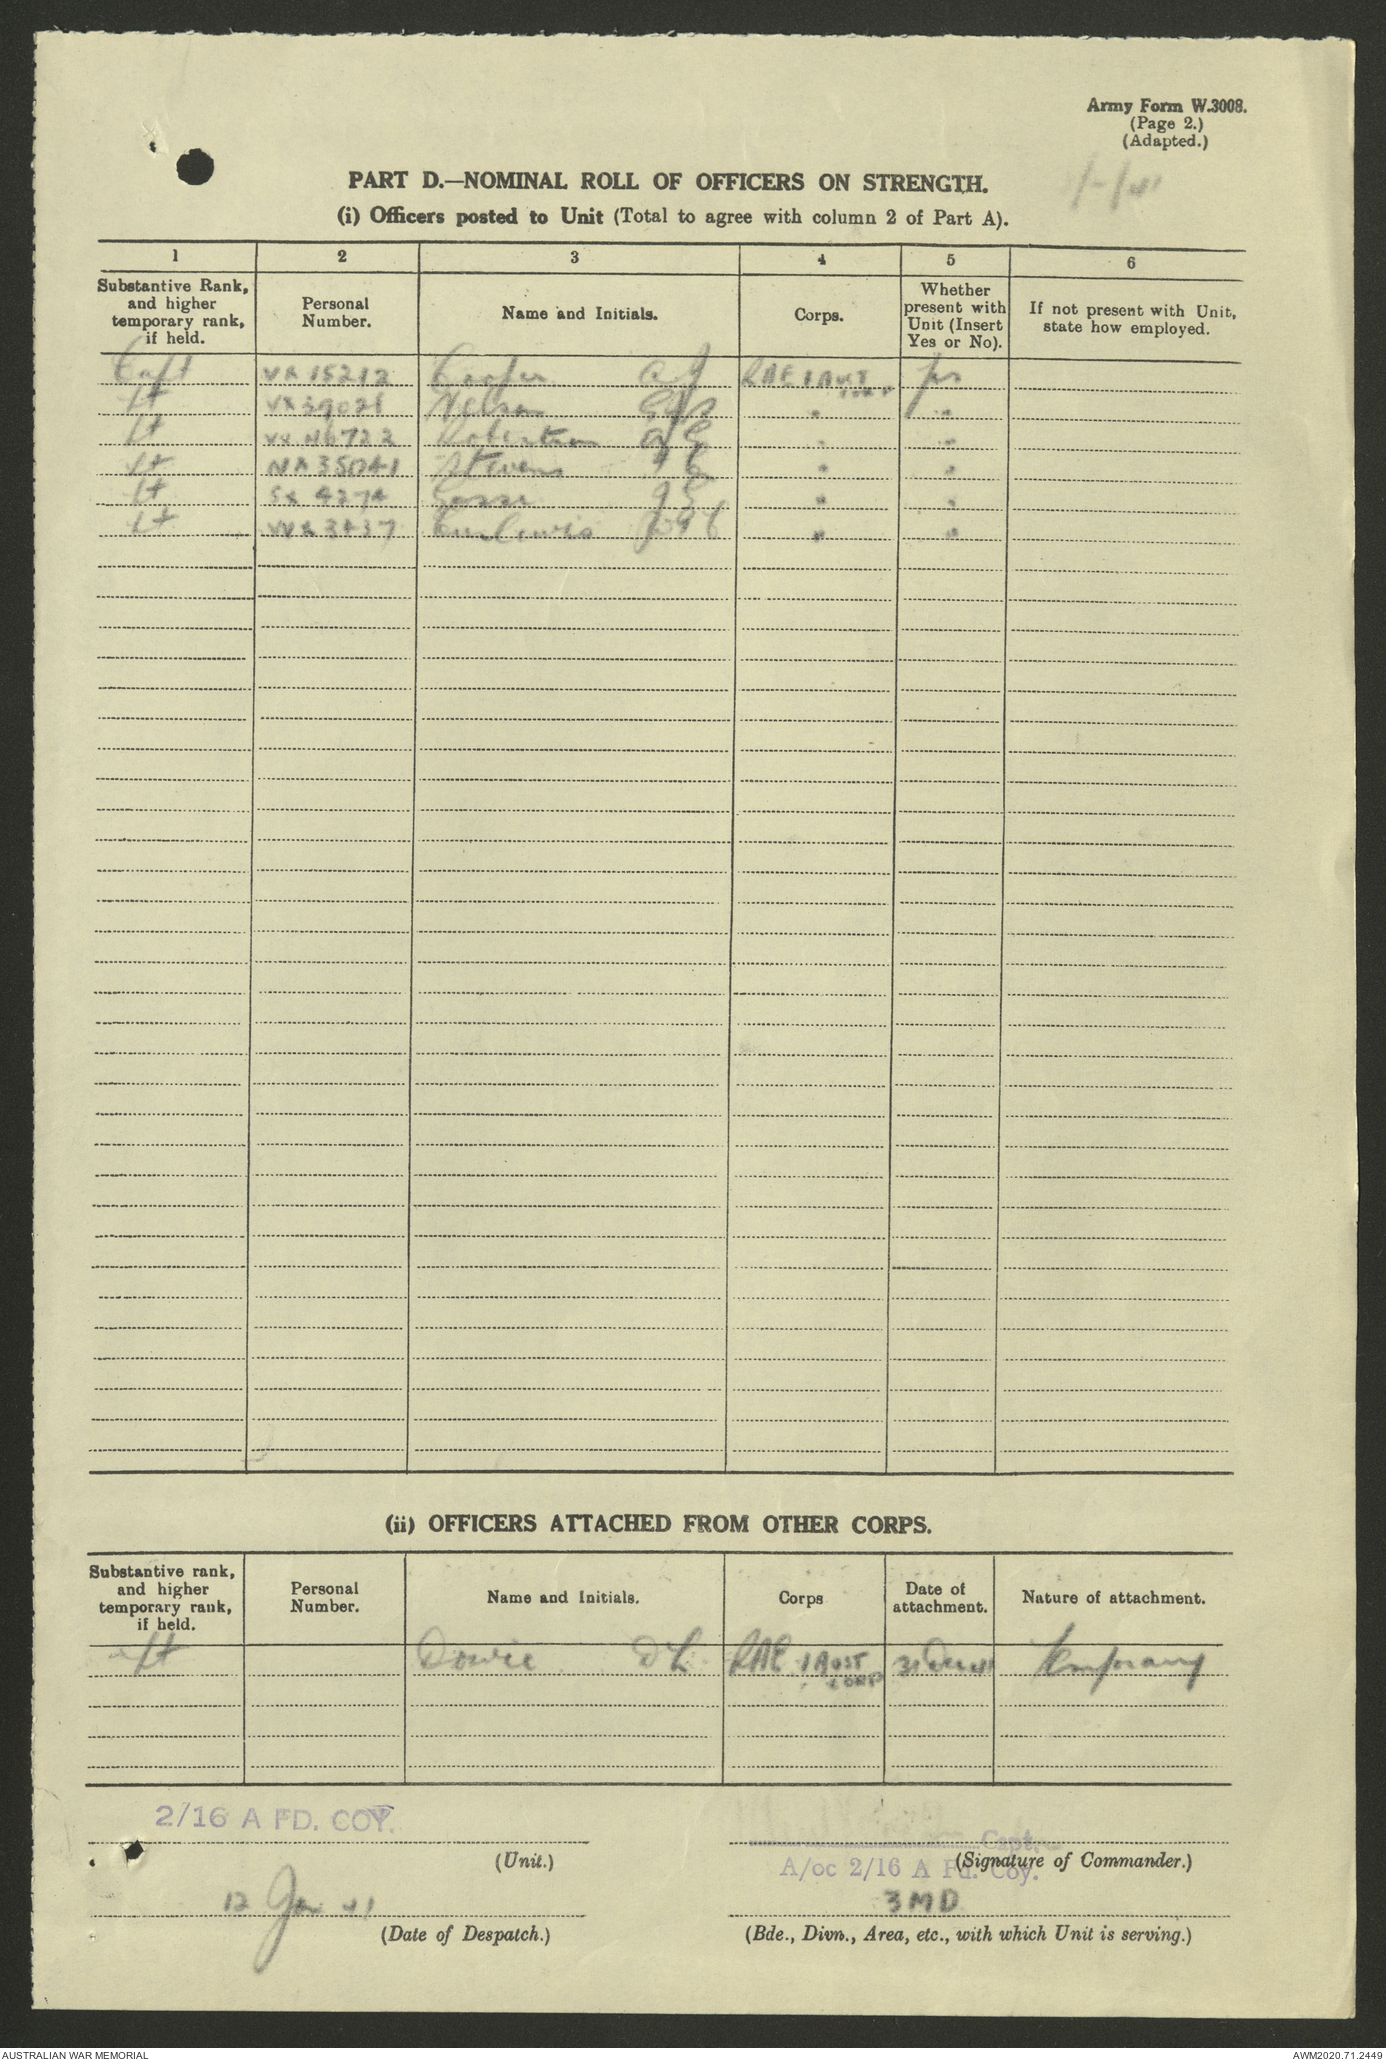 Army Form W.3008.
(Page 2.)
(Adapted.)
PART D.—NOMINAL ROLL OF OFFICERS ON STRENGTH.
(i) Officers posted to Unit (Total to agree with column 2 of Part A).
1 2 3 4 5 6
Substantive Rank, and higher temporary rank, if held. Personal Number. Name and Initials. Corps. Whether present with Unit (Insert Yes or No). If not present with Unit, state how employed.
Capt VX 15212 Cooper A J RAE 1 AUST CORP yes
Lt Nelson " "
Lt Robertson A E " "
Lt NX 35041 Stevens " "
Lt SX 4274 Gosse J E " "
Lt " "
(ii) OFFICERS ATTACHED FROM OTHER CORPS.
Substantive rank, and higher temporary rank, if held. Personal Number. Name and Initials. Corps Date of attachment. Nature of attachment.
Lt Dowie D L RAE 1 AUST CORP 31 Dec 41 Temporary
2/16 A FD. COY.
(Unit.)
Capt.
A/oc 2/16 A Fd. Coy.
(Signature of Commander.)
12 Jan 41
(Date of Despatch.)
3 MD
(Bde., Divn., Area, etc., with which Unit is serving.)
AUSTRALIAN WAR MEMORIAL
AWM2020.71.2449